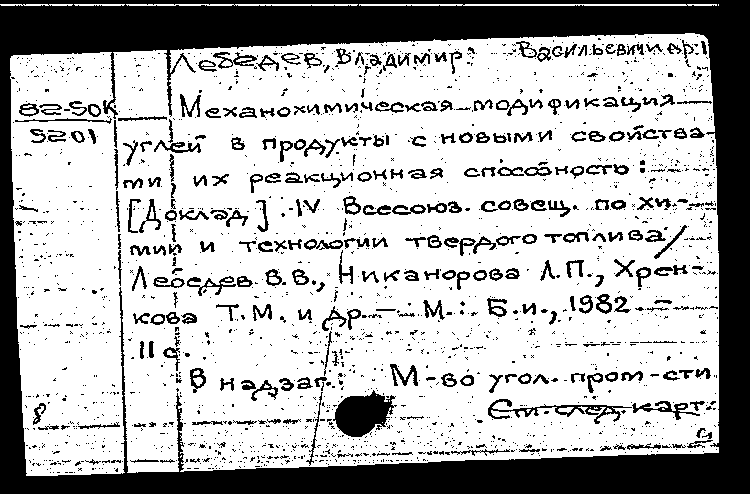 Лебедев, Владимир Васильевич и др.
82-50К
5201
Механохимическая модификация
углей в продукты с новыми свойства-
ми, их реакционная способность:
[Доклад]. IV Всесоюз. совещ. по хи-
мии и технологии твердого топлива/
Лебедев В.В., Никанорова Л.П., Хрен-
кова Т.М. и др.— М.: Б.и., 1982. —
11 с.
В надзаг.: М-во угол. пром-сти
8 Єти. след. карт.